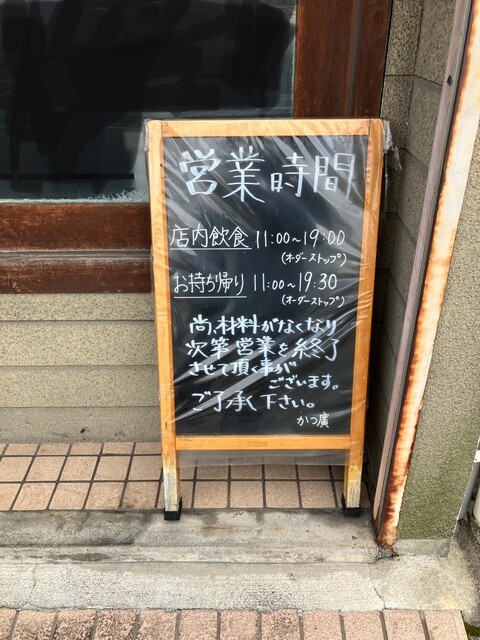 営業時間
店内飲食 11:00~19:00
(オーダーストップ)
お持ち帰り 11:00~19:30
(オーダーストップ)
尚、材料がなくなり
次第営業を終了
させて頂く事が
ございます。
ご了承下さい。
かつ廣